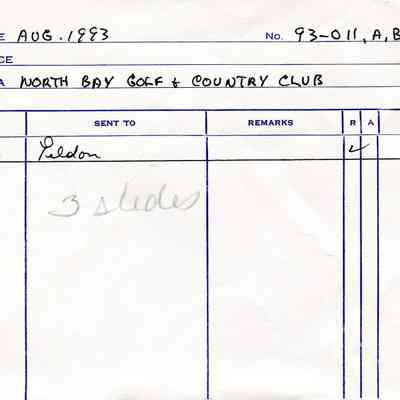 E AUG. 1993 No. 93-011, A, B
CE
A NORTH BAY GOLF & COUNTRY CLUB
SENT TO REMARKS R A
Yeldon ✓
3 slides